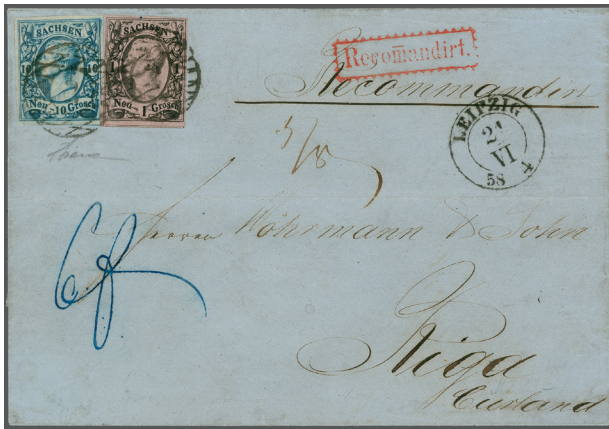 SACHSEN
10 10
Neu-10 Grosch.
SACHSEN
1 1
Neu-1 Grosch.
Recomandirt.
Recommandirt
LEIPZIG
21
VI
58
4
Herren Wöhrmann & Sohn
Riga
Curland